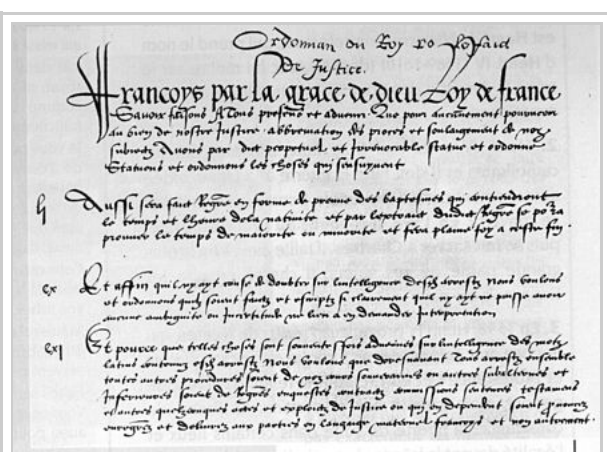 Ordonnan du Roy sur le faict
De Justice.
Francoys par la grace de dieu Roy de france
Scavoir faisons A Tous presens et advenir Que pour aucunement pourveoir
au bien de nostre Justice abbreviation des proces et soulaigement de noz
subiectz Avons par edict perpetuel et irrevocable statue et ordonne
Statuons et ordonnons les choses qui sensuyvent
Aussi sera faict Regre en forme de preuve des baptesmes qui contiendront
le temps et lheure de la nativite et par lextraict dudict Regre se porra
prouver le temps de maiorite ou minorite et fera plaine foy a ceste fin
cx Et affin quil ny ayt cause de doubter sur lintelligence desd arrestz Nous voulons
et ordonnons quilz soient faictz et escriptz si clairement quil ny ayt ne puisse avoir
aucune ambiguite ou incertitude ne lieu a en demander Interpretation
cxj Et pource que telles choses sont souventesfois advenues sur lintelligence des motz
latins contenuz esd arrestz Nous voulons que doresnavant Tous arrestz ensemble
toutes autres procedures soient de noz cours souveraines ou autres subalternes et
Inferieures soient de Regres enquestes contractz commissions sentences testamens
et autres quelzconques actes et exploictz de Justice ou qui en dependent soient prononcez
enregrez et delivrez aux parties en langage maternel francoys et non autrement.